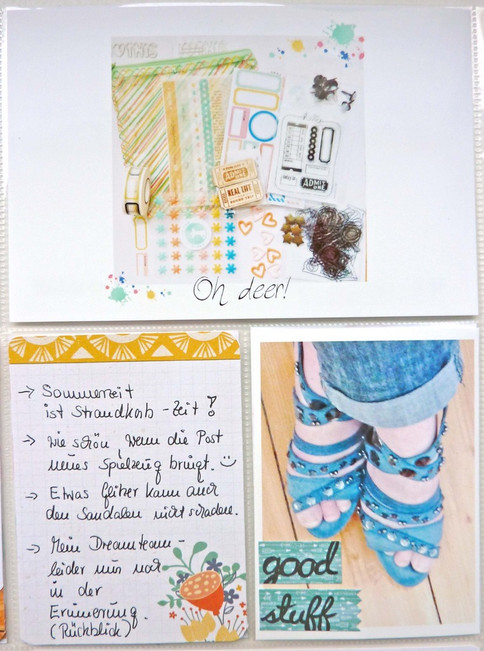 ADMIT
REAL LIFE
ADMIT
ONE
Oh deer!
→ Sommerzeit
ist Strandkorb-Zeit!
→ Wie schön, wenn die Post
neues Spielzeug bringt. :)
→ Etwas Glitzer kann auch
den Sandalen nicht schaden.
→ Mein Dreamteam -
leider nur noch
in der
Erinnerung.
(Rückblick)
good
stuff